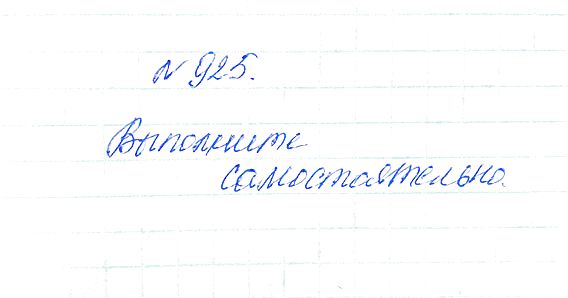 № 925.
Выполните
самостоятельно.